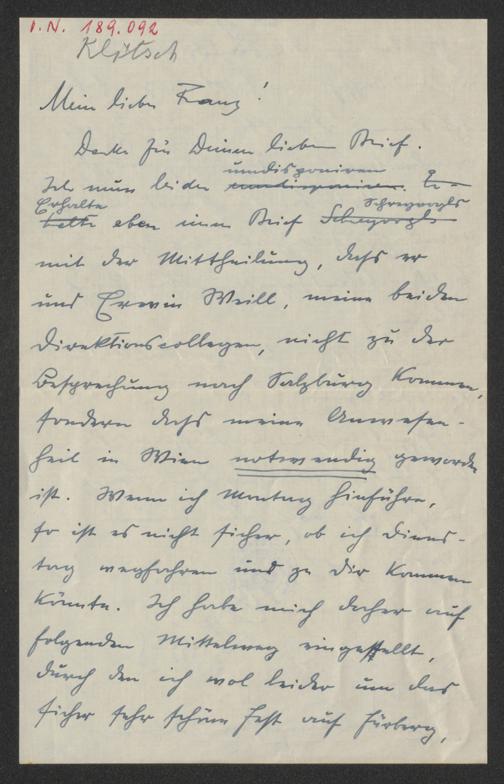 I.N. 189.092
Klitsch
Mein lieber Franz!
Danke für Deinen lieben Brief.
umdisponieren
Ich muss leider umdisponieren. Er-
Erhalte Schreyvogls
halte eben einen Brief Schreyvogls
mit der Mittheilung, dass er
und Erwin Weill, meine beiden
Direktionscollegen, nicht zu der
Besprechung nach Salzburg kommen,
sondern dass meine Anwesen-
heit in Wien notwendig geworden
ist. Wenn ich Montag hinführe,
so ist es nicht sicher, ob ich Diens-
tag wegfahren und zu Dir kommen
könnte. Ich habe mich daher auf
folgenden Mittelweg eingestellt,
durch den ich wol leider um das
sicher sehr schöne Fest auf Fürberg,